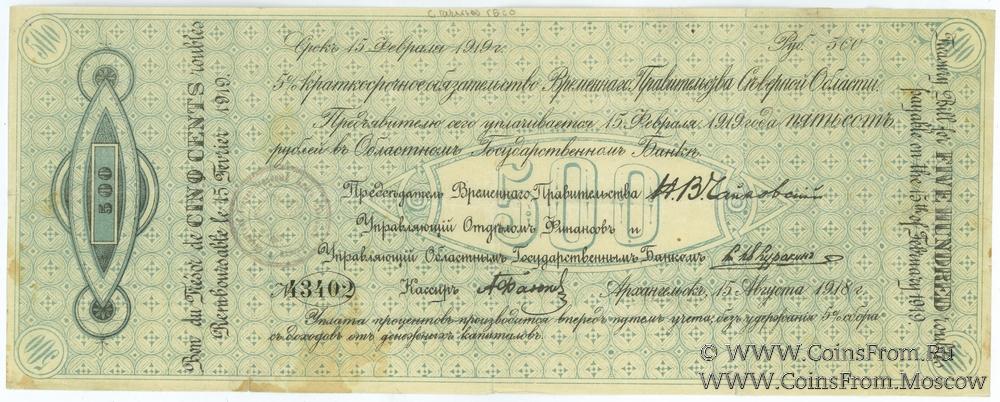 Срокъ 15 Февраля 1919 г.
Руб. 500
5% краткосрочное обязательство Временнаго Правительства Сѣверной Области.
Предъявителю сего уплачивается 15 Февраля 1919 года пятьсотъ
рублей въ Областномъ Государственномъ Банкѣ.
Предсѣдатель Временнаго Правительства Н. В. Чайковскій
Управляющій Отдѣломъ Финансовъ и
Управляющій Областнымъ Государственнымъ Банкомъ
500
№ 43402
Кассиръ
Архангельскъ, 15 Августа 1918 г.
Уплата процентовъ производится впередъ путемъ учета, безъ удержанія 5% сбора
съ доходовъ отъ денежныхъ капиталовъ.
500
Bon du Trésor de CINQ CENTS roubles
Remboursable le 15 Février 1919.
Treasury Bill for FIVE HUNDRED roubles
payable on the 15th of February 1919.
© WWW.CoinsFrom.Ru
WWW.CoinsFrom.Moscow